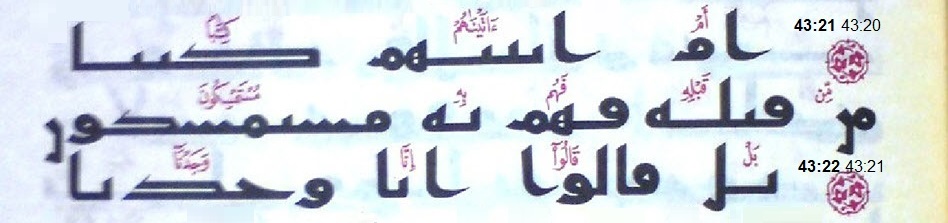 43:21 43:20
أَمْ ءَاتَيْنَٰهُمْ كِتَٰبًا
ام اتينهم كتبا
مِّن قَبْلِهِ فَهُم بِهِ مُسْتَمْسِكُونَ
من قبله فهم به مستمسكون
43:22 43:21
بَلْ قَالُوٓا۟ إِنَّا وَجَدْنَآ
بل قالوا انا وجدنا